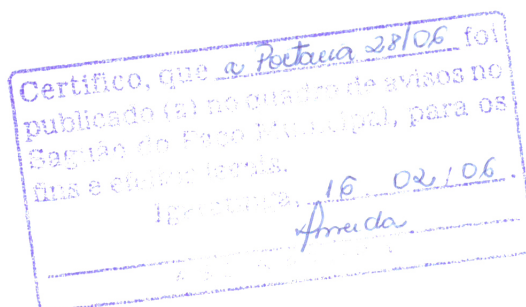 Certifico, que a Portaria 28/06 foi
publicado (a) no quadro de avisos no
Saguão do Paço Municipal, para os
fins e efeitos legais.
16 02 / 06
Almeida